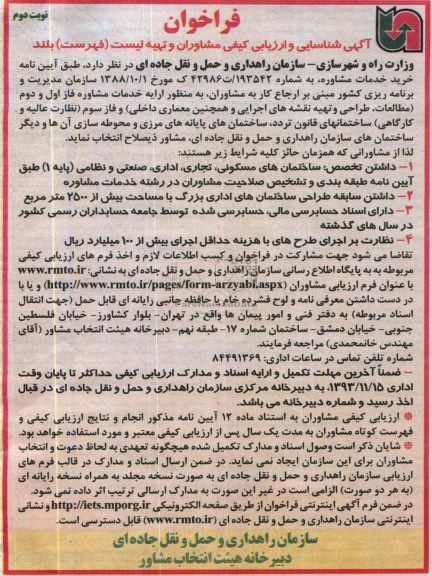 نوبت دوم
فراخوان
آگهی شناسایی و ارزیابی کیفی مشاوران و تهیه لیست (فهرست) بلند
وزارت راه و شهرسازی – سازمان راهداری و حمل و نقل جاده ای در نظر دارد، طبق آیین نامه
خرید خدمات مشاوره، به شماره ۱۹۳۵۴۲/ت۴۲۹۸۶ک مورخ ۱۳۸۸/۱۰/۱ سازمان مدیریت و
برنامه ریزی کشور مبنی بر ارجاع کار به مشاوران، به منظور ارایه خدمات مشاوره فاز اول و دوم
(مطالعات، طراحی و تهیه نقشه های اجرایی و همچنین معماری داخلی) و فاز سوم (نظارت عالیه و
کارگاهی) ساختمانهای قانون تردد، ساختمان های پایانه های مرزی و محوطه سازی آن ها و دیگر
ساختمان های سازمان راهداری و حمل و نقل جاده ای، مشاور ذیصلاح انتخاب نماید.
لذا از مشاورانی که همزمان حائز کلیه شرایط زیر هستند:
۱– داشتن تخصص: ساختمان های مسکونی، تجاری، اداری، صنعتی و نظامی (پایه ۱) طبق
آیین نامه طبقه بندی و تشخیص صلاحیت مشاوران در رشته خدمات مشاوره
۲– داشتن سابقه طراحی ساختمان های اداری بزرگ با مساحت بیش از ۲۵۰۰ متر مربع
۳– دارای اسناد حسابرسی مالی، حسابرسی شده توسط جامعه حسابداران رسمی کشور
در سال های گذشته
۴– نظارت بر اجرای طرح های با هزینه حداقل اجرای بیش از ۱۰۰ میلیارد ریال
تقاضا می شود جهت مشارکت در فراخوان و کسب اطلاعات لازم و اخذ فرم های ارزیابی کیفی
مربوطه به به پایگاه اطلاع رسانی سازمان راهداری و حمل و نقل جاده ای به نشانی: www.rmto.ir
با عنوان فرم ارزیابی مشاوران (http://www.rmto.ir/pages/form-arzyabi.aspx) و یا با
در دست داشتن معرفی نامه و لوح فشرده خام یا حافظه جانبی رایانه ای قابل حمل (جهت انتقال
اسناد مربوطه) به دفتر فنی و امور پیمان ها واقع در تهران- بلوار کشاورز- خیابان فلسطین
جنوبی- خیابان دمشق- ساختمان شماره ۱۷- طبقه نهم- دبیرخانه هیئت انتخاب مشاور (آقای
مهندس خانمحمدی) مراجعه فرمایند.
شماره تلفن تماس در ساعات اداری: ۸۴۴۹۱۳۶۹
– ضمناً آخرین مهلت تکمیل و ارایه اسناد و مدارک ارزیابی کیفی حداکثر تا پایان وقت
اداری ۱۳۹۳/۱۱/۱۵، به دبیرخانه مرکزی سازمان راهداری و حمل و نقل جاده ای در قبال
اخذ رسید و شماره دبیرخانه می باشد.
* ارزیابی کیفی مشاوران به استناد ماده ۱۲ آیین نامه مذکور انجام و نتایج ارزیابی کیفی و
فهرست کوتاه مشاوران به مدت یک سال پس از ارزیابی کیفی معتبر و مورد استفاده خواهد بود.
* شایان ذکر است وصول اسناد و مدارک تکمیل شده هیچگونه تعهدی به لحاظ دعوت و انتخاب
مشاوران برای این سازمان ایجاد نمی نماید. در ضمن ارسال اسناد و مدارک در قالب فرم های
ارزیابی سازمان راهداری و حمل و نقل جاده ای به صورت نسخه مجلد به همراه نسخه رایانه ای
(به هر دو صورت) الزامی است در غیر این صورت به مدارک ارسالی ترتیب اثر داده نمی شود.
در ضمن فرم آگهی اینترنتی فراخوان از طریق صفحه الکترونیکی http://iets.mporg.ir و نشانی
اینترنتی سازمان راهداری و حمل و نقل جاده ای (www.rmto.ir) قابل دسترسی است.
سازمان راهداری و حمل و نقل جاده ای
دبیرخانه هیئت انتخاب مشاور